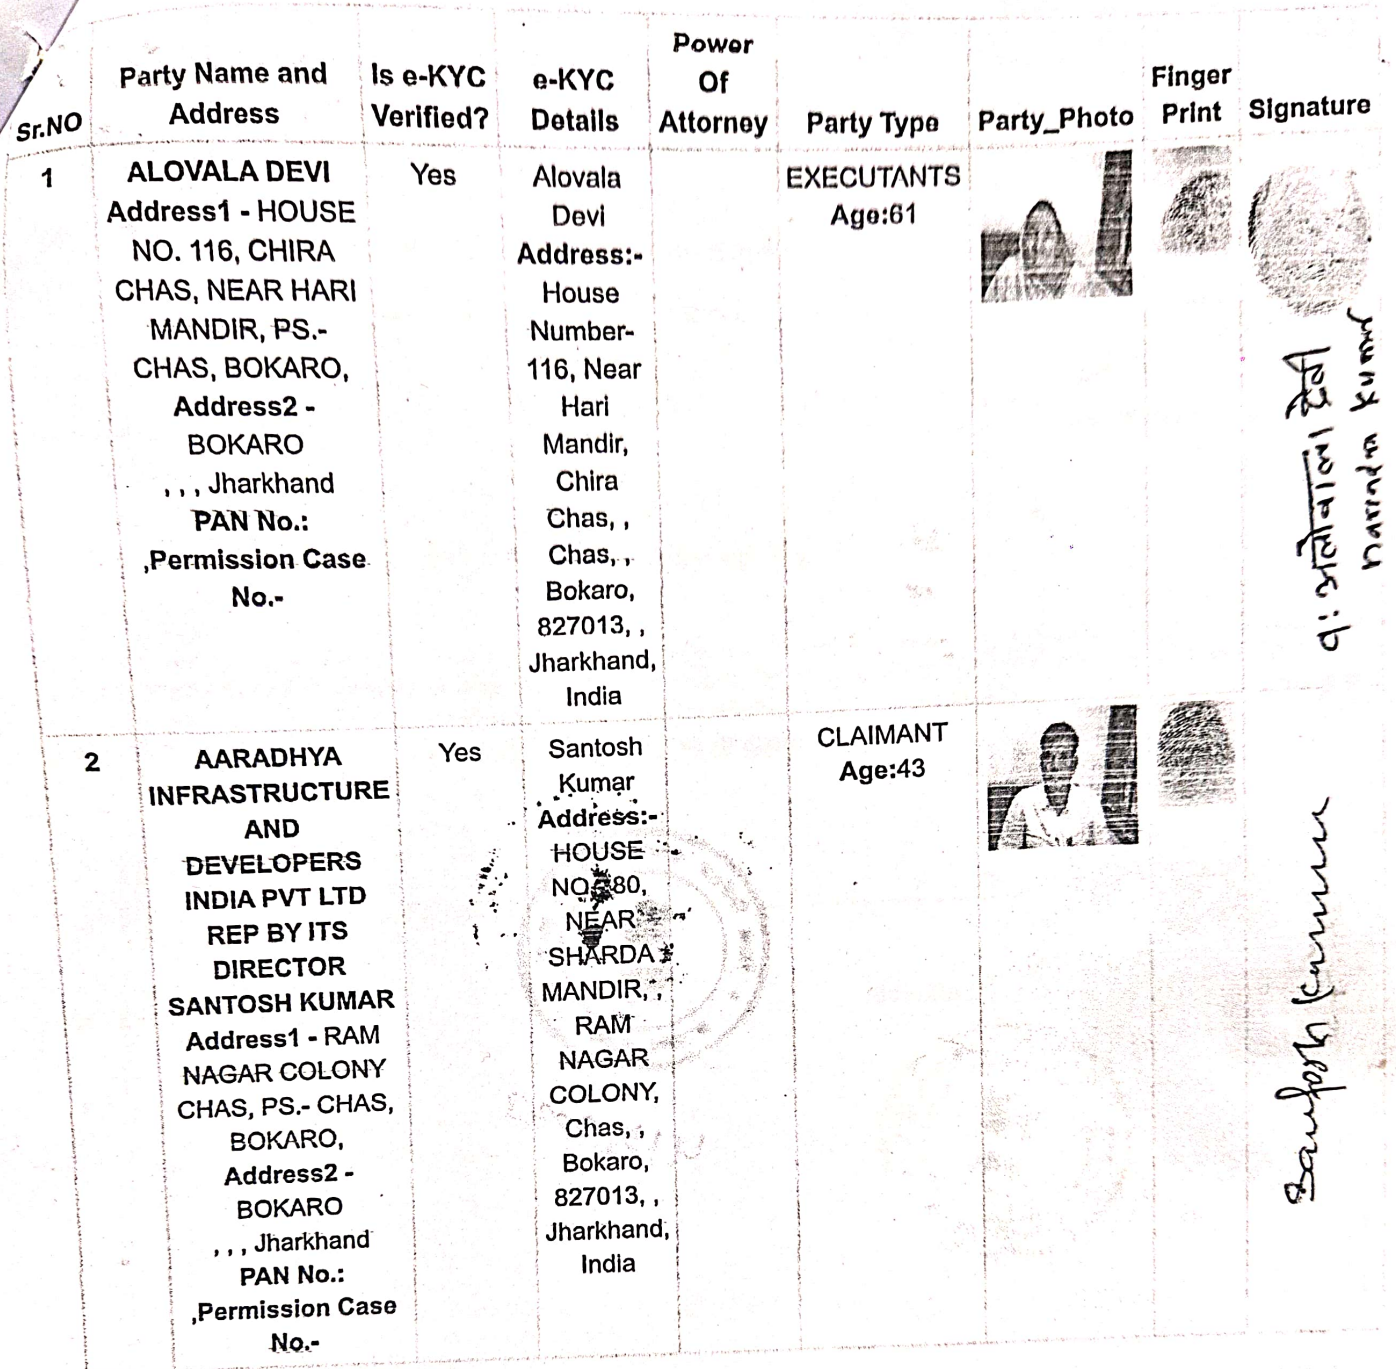 Sr.NO
Party Name and
Address
Is e-KYC
Verified?
e-KYC
Details
Power
Of
Attorney
Party Type
Party_Photo
Finger
Print
Signature
1
ALOVALA DEVI
Address1 - HOUSE
NO. 116, CHIRA
CHAS, NEAR HARI
MANDIR, PS.-
CHAS, BOKARO,
Address2 -
BOKARO
, , , Jharkhand
PAN No.:
,Permission Case
No.-
Yes
Alovala
Devi
Address:-
House
Number-
116, Near
Hari
Mandir,
Chira
Chas, ,
Chas, ,
Bokaro,
827013, ,
Jharkhand,
India
EXECUTANTS
Age:61
अलोवाला देवी
kumar
2
AARADHYA
INFRASTRUCTURE
AND
DEVELOPERS
INDIA PVT LTD
REP BY ITS
DIRECTOR
SANTOSH KUMAR
Address1 - RAM
NAGAR COLONY
CHAS, PS.- CHAS,
BOKARO,
Address2 -
BOKARO
, , , Jharkhand
PAN No.:
,Permission Case
No.-
Yes
Santosh
Kumar
Address:-
HOUSE
80,
NEAR
SHARDA
MANDIR, ,
RAM
NAGAR
COLONY,
Chas, ,
Bokaro,
827013, ,
Jharkhand,
India
CLAIMANT
Age:43
Santosh Kumar